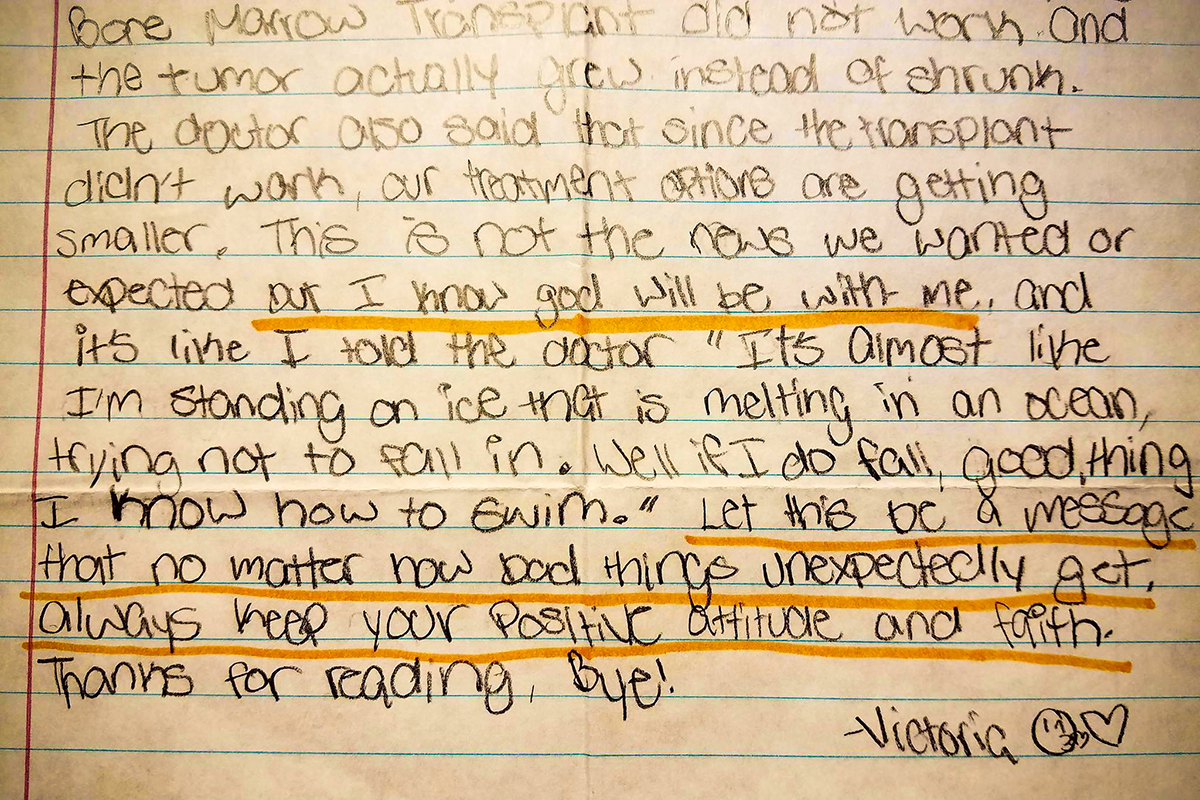 Bone Marrow Transplant did not work. And
the tumor actually grew instead of shrunk.
The doctor also said that since the transplant
didn't work, our treatment options are getting
smaller. This is not the news we wanted or
expected but I know god will be with me, and
it's like I told the doctor "It's almost like
I'm standing on ice that is melting in an ocean,
trying not to fall in. Well if I do fall, good thing
I know how to swim." Let this be a message
that no matter how bad things unexpectedly get,
always keep your positive attitude and faith.
Thanks for reading, Bye!
-Victoria